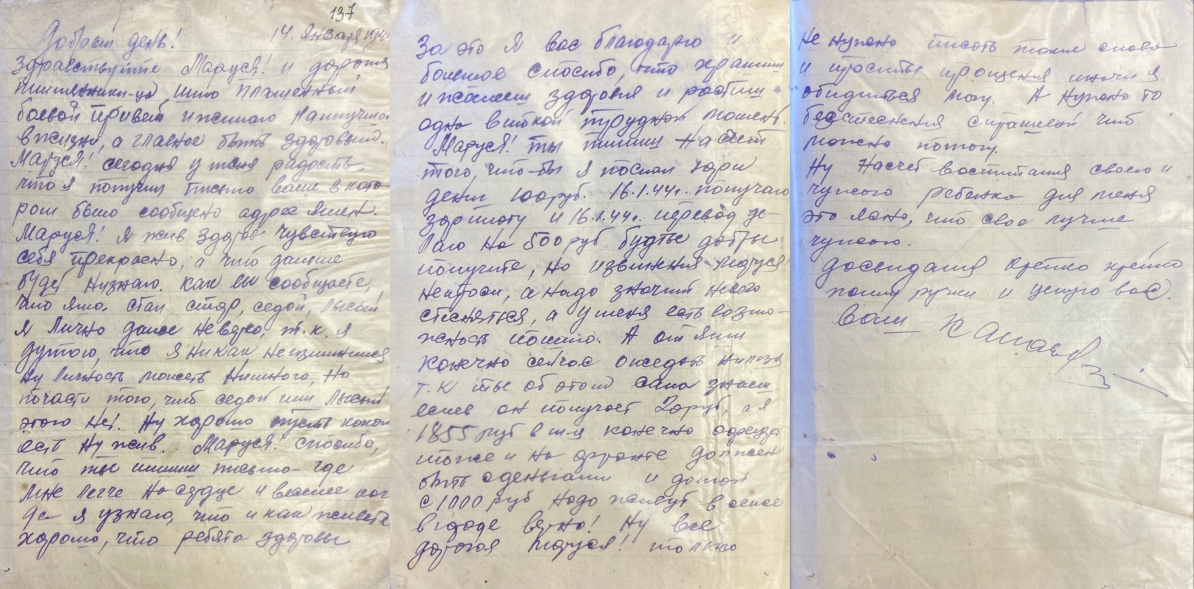 137
Добрый день! 14. Января 194
Здравствуйте Маруся! и дорогая
шлю пламенный
боевой привет и желаю Наилучшего
в жизни, а главное быть здоровым.
Маруся! сегодня у меня радость,
что я получил письмо ваше в кото-
ром было сообщено адрес
Маруся! Я жив здоров, чувствую
себя прекрасно, а что дальше
буду незнаю. Как вы сообщаете,
что стал стар, седой, лысый
Я Лично даже не верю, т.к. я
думаю, что я никак неизменился
Ну Личность может Немного, Но
почасти того, что седой или Лысый
этого Не! Ну хорошо пусть какой
есть Ну жив. Маруся! спасибо,
что ты пишеш письмо- где
мне Легче На сердце и веселее ког
да я узнаю, что и как живете
хорошо, что ребята здоровы
За это я вас благодарю и
большое спасибо, что храниш
и жалееш здоровя и растиш
одна в такой трудной момент.
Маруся! ты пишиш Насчет
того, что-бы я послал
денег 100 руб. 16.1.44г. получаю
зарплату и 16.1.44г. перевод де-
лаю На 500 руб будьте добры
получите, но извинения Маруся!
Непроси, а надо значит нечего
стесняться, а у меня есть возмо-
жность помочь. А от
конечно сейчас ожидать
т.к. ты об этом сама знаеш
если он получает 20 руб, а я
1855 руб в м-ц конечно
тоже и на фронте должен
быть с деньгами и домой
с 1000 руб надо
в годе верно! Ну все
дорогая Маруся! только
Не нужно писать такие слова
и просить прощения иначи я
обидиться могу. А нужно то
без стеснения что
можно помогу.
Ну Насчет воспитания своего и
чужого ребенка для меня
это ясно, что свое лучше
чужого.
Досвидания крепко крепко
жму руки и целую вас.
Ваш